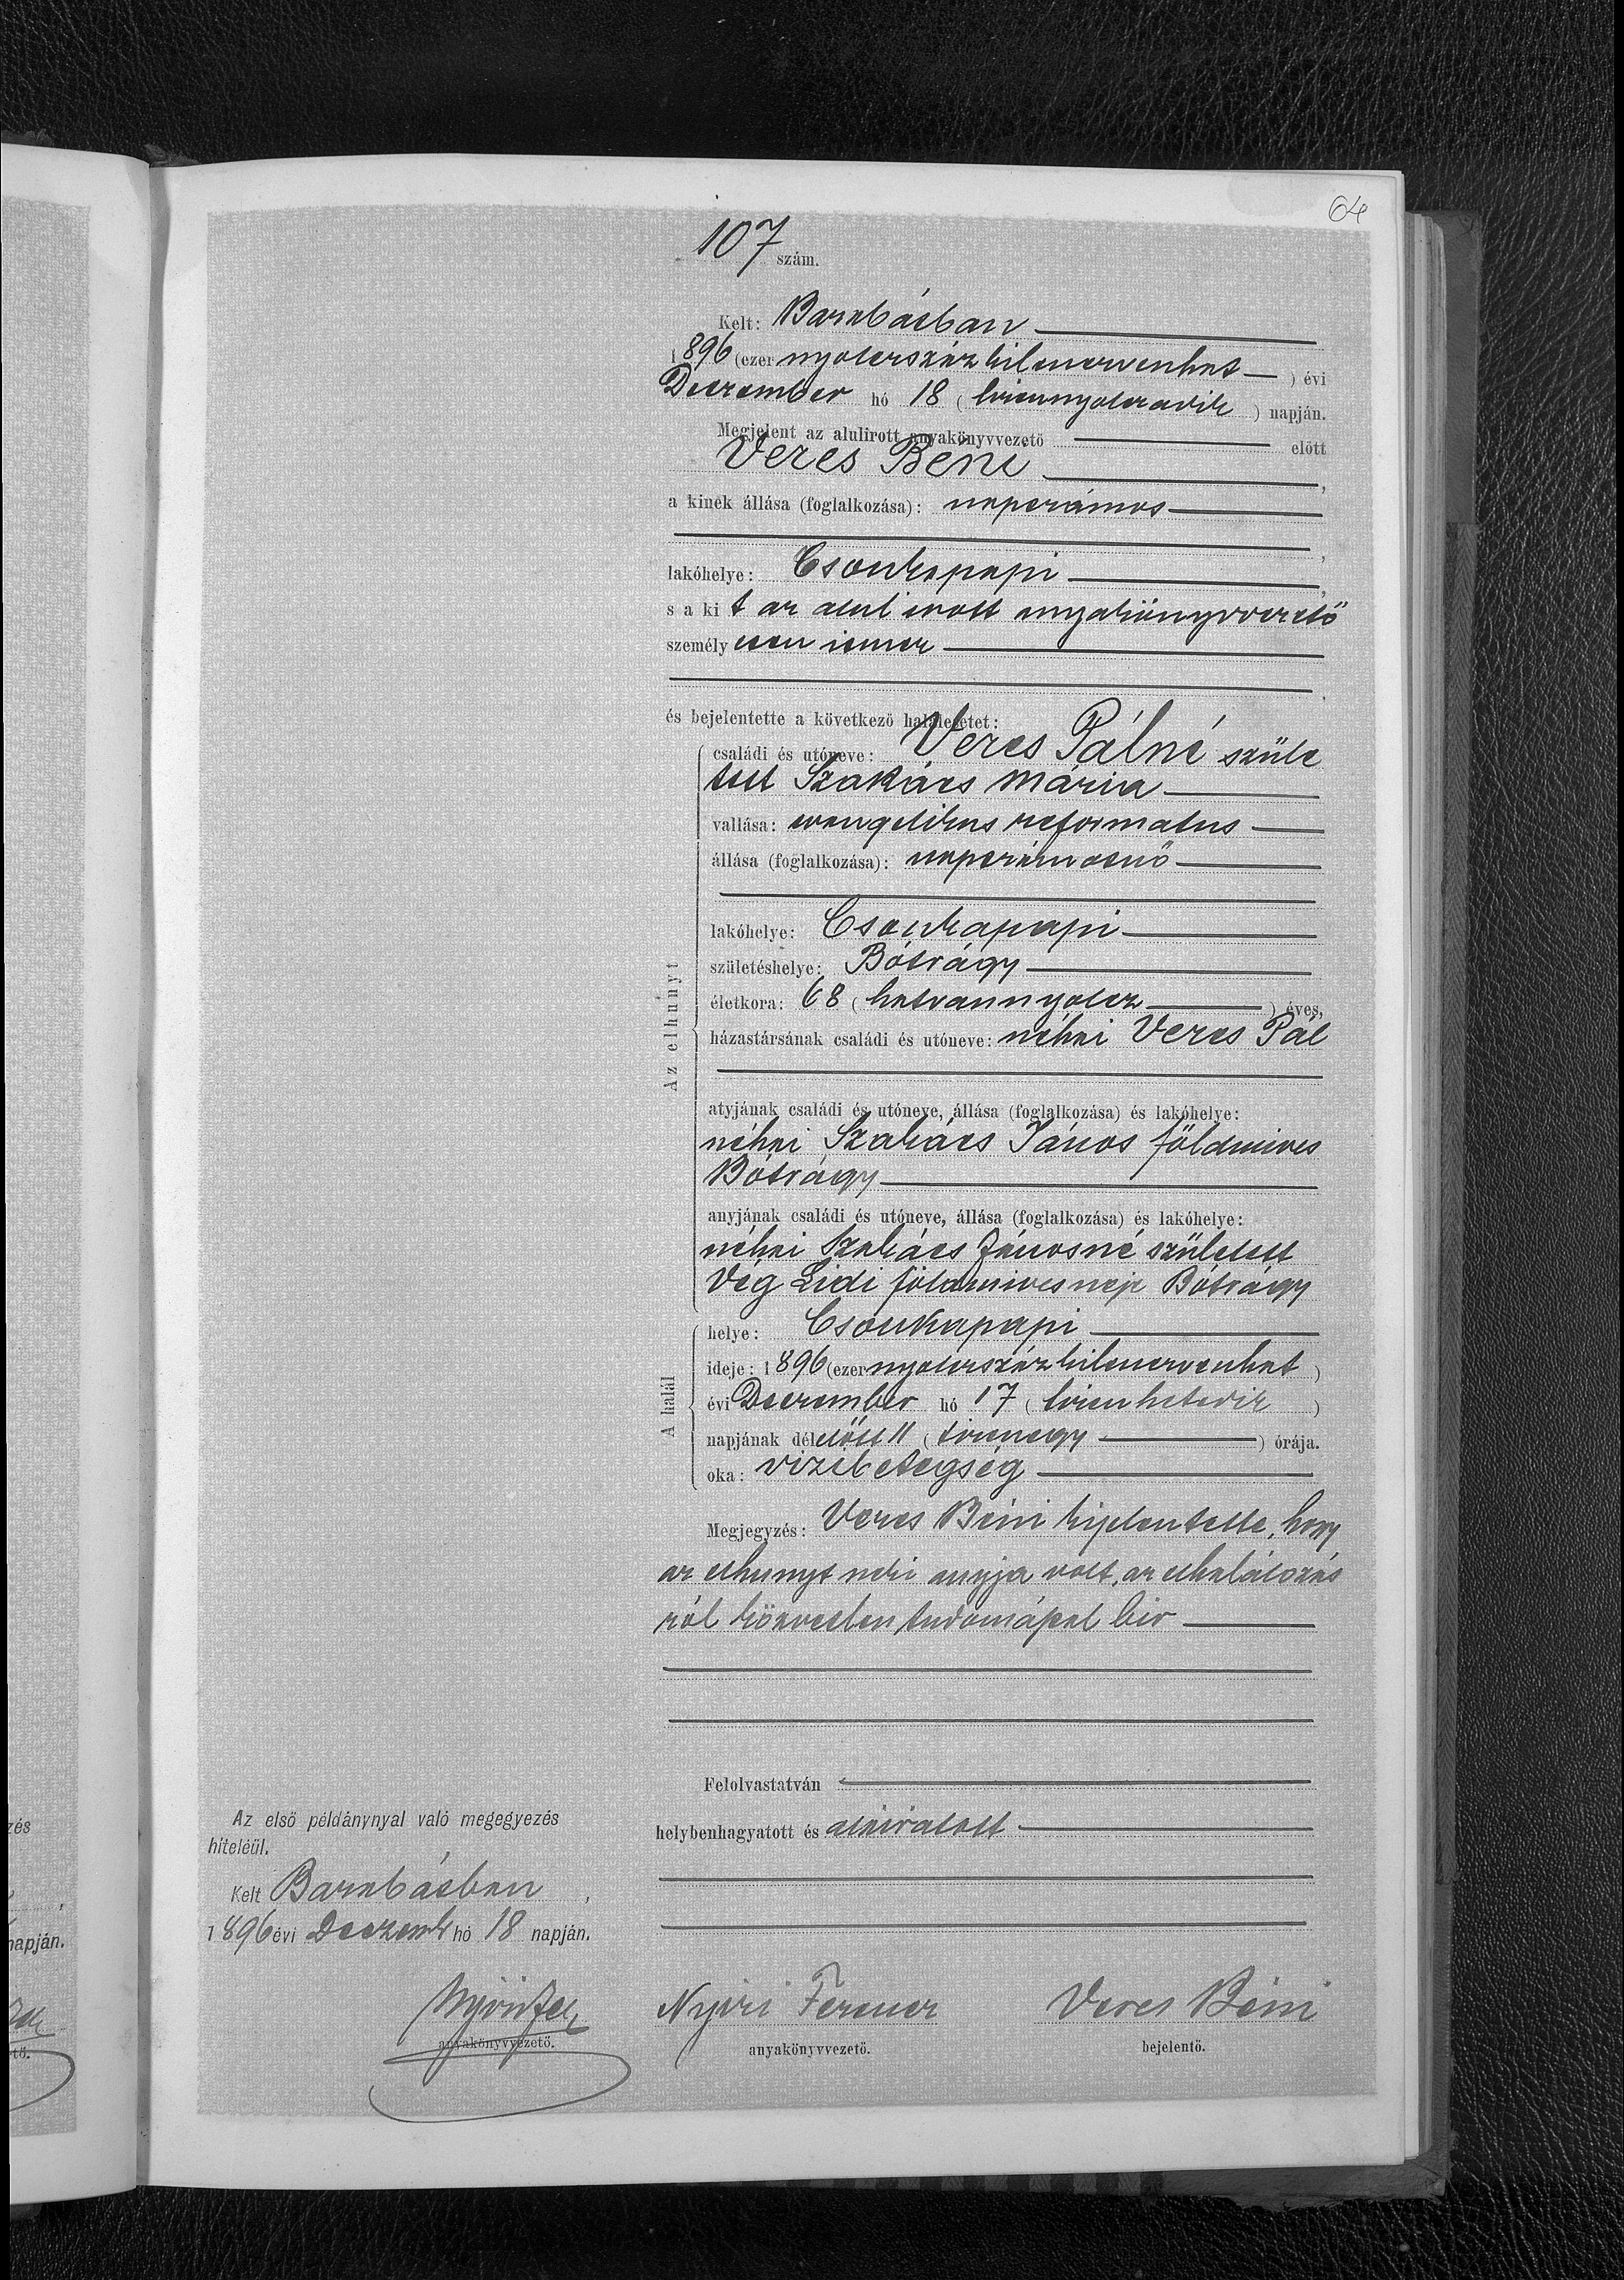 64
107 szám.
Kelt: Barabásban
1896 (ezer nyolczszázkilenczvenhat ) évi
Deczember hó 18 ( tizennyolczadik ) napján.
Megjelent az alulirott anyakönyvvezető előtt
Veres Béni ,
a kinek állása (foglalkozása): napszámos
,
lakóhelye: Csonkapapi ,
s a kit az alulirott anyakönyvvezető
személyesen ismer
.
és bejelentette a következő halálesetet:
Az elhunyt
családi és utóneve: Veres Pálné szüle
tett Szakács Mária
vallása: evangelikus reformatus
állása (foglalkozása): napszámosnő
lakóhelye: Csonkapapi
születéshelye: Bótrágy
életkora: 68 ( hatvannyolcz ) éves,
házastársának családi és utóneve: néhai Veres Pál
atyjának családi és utóneve, állása (foglalkozása) és lakóhelye:
néhai Szakács János földmives
Bótrágy
anyjának családi és utóneve, állása (foglalkozása) és lakóhelye:
néhai Szakács Jánosné született
Vég Lidi földmivesnej Bótrágy
A halál
helye: Csonkapapi
ideje: 1896 (ezer nyolczszázkilenczvenhat )
évi Deczember hó 17 ( tizenhetedik )
napjának délelőtt 11 ( tizenegy ) órája.
oka: vizibetegség
Megjegyzés: Veres Béni kijelentette, hogy
az elhunyt néki anyja volt, az elhalálozás
ról közvetlen tudomással bir
Felolvastatván
helybenhagyatott és aláiratott
Az első példánynyal való megegyezés
hiteléül.
Kelt Barabásban ,
1896 évi Deczemb hó 18 napján.
anyakönyvvezető.
Nyiri Ferencz
anyakönyvvezető.
Veres Béni
bejelentő.
zés
,
napján.
tő.